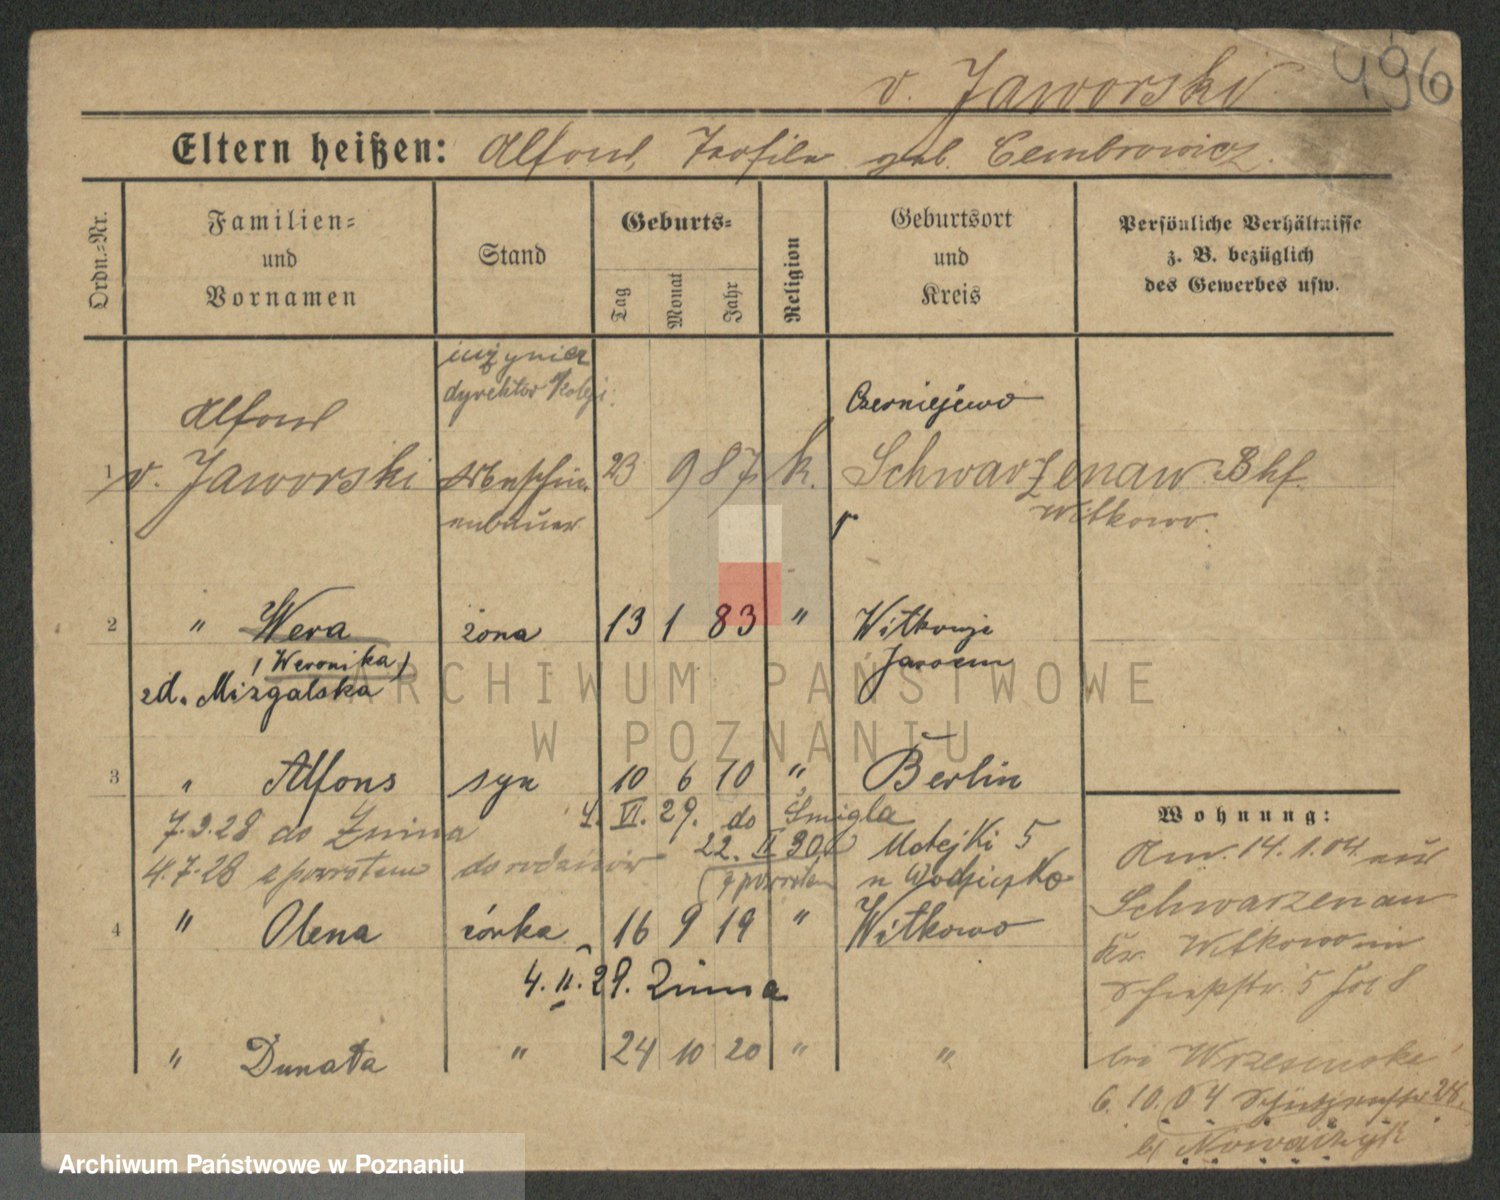 v. Jaworski
496
Eltern heißen: Alfons, Teofila geb. Cembrowicz.
Ordn.-Nr.
Familien- und Vornamen
Stand
Geburts-
Tag
Monat
Jahr
Religion
Geburtsort und Kreis
Persönliche Verhältnisse z. B. bezüglich des Gewerbes usw.
inżynier
dyrektor koleji
Alfons
Czerniejewo
1 v. Jaworski Maschin. 23 9 87 k. Schwarzenau Bhf.
enbauer Witkowo.
2 " Wera żona 13 1 83 " Witkowje
(Weronika) Jarocin
zd. Mizgalska
3 " Alfons syn 10 6 10 " Berlin
7.9.28 do Żnina 4. VI. 29. do Śmigla
22. II 30. Matejki 5
4.7.28 z powrotem do rodziców (z powrotem u
4 " Olena córka 16 9 19 " Witkowo
4. II. 29. Żnina
" Dunata " 24 10 20 " "
Wohnung:
Am. 14.1.04 aus
Schwarzenau
Kr. Witkowo in
5
bei
6.10.04 28.
b/ Nowaczyk
ARCHIWUM PAŃSTWOWE
W POZNANIU
Archiwum Państwowe w Poznaniu